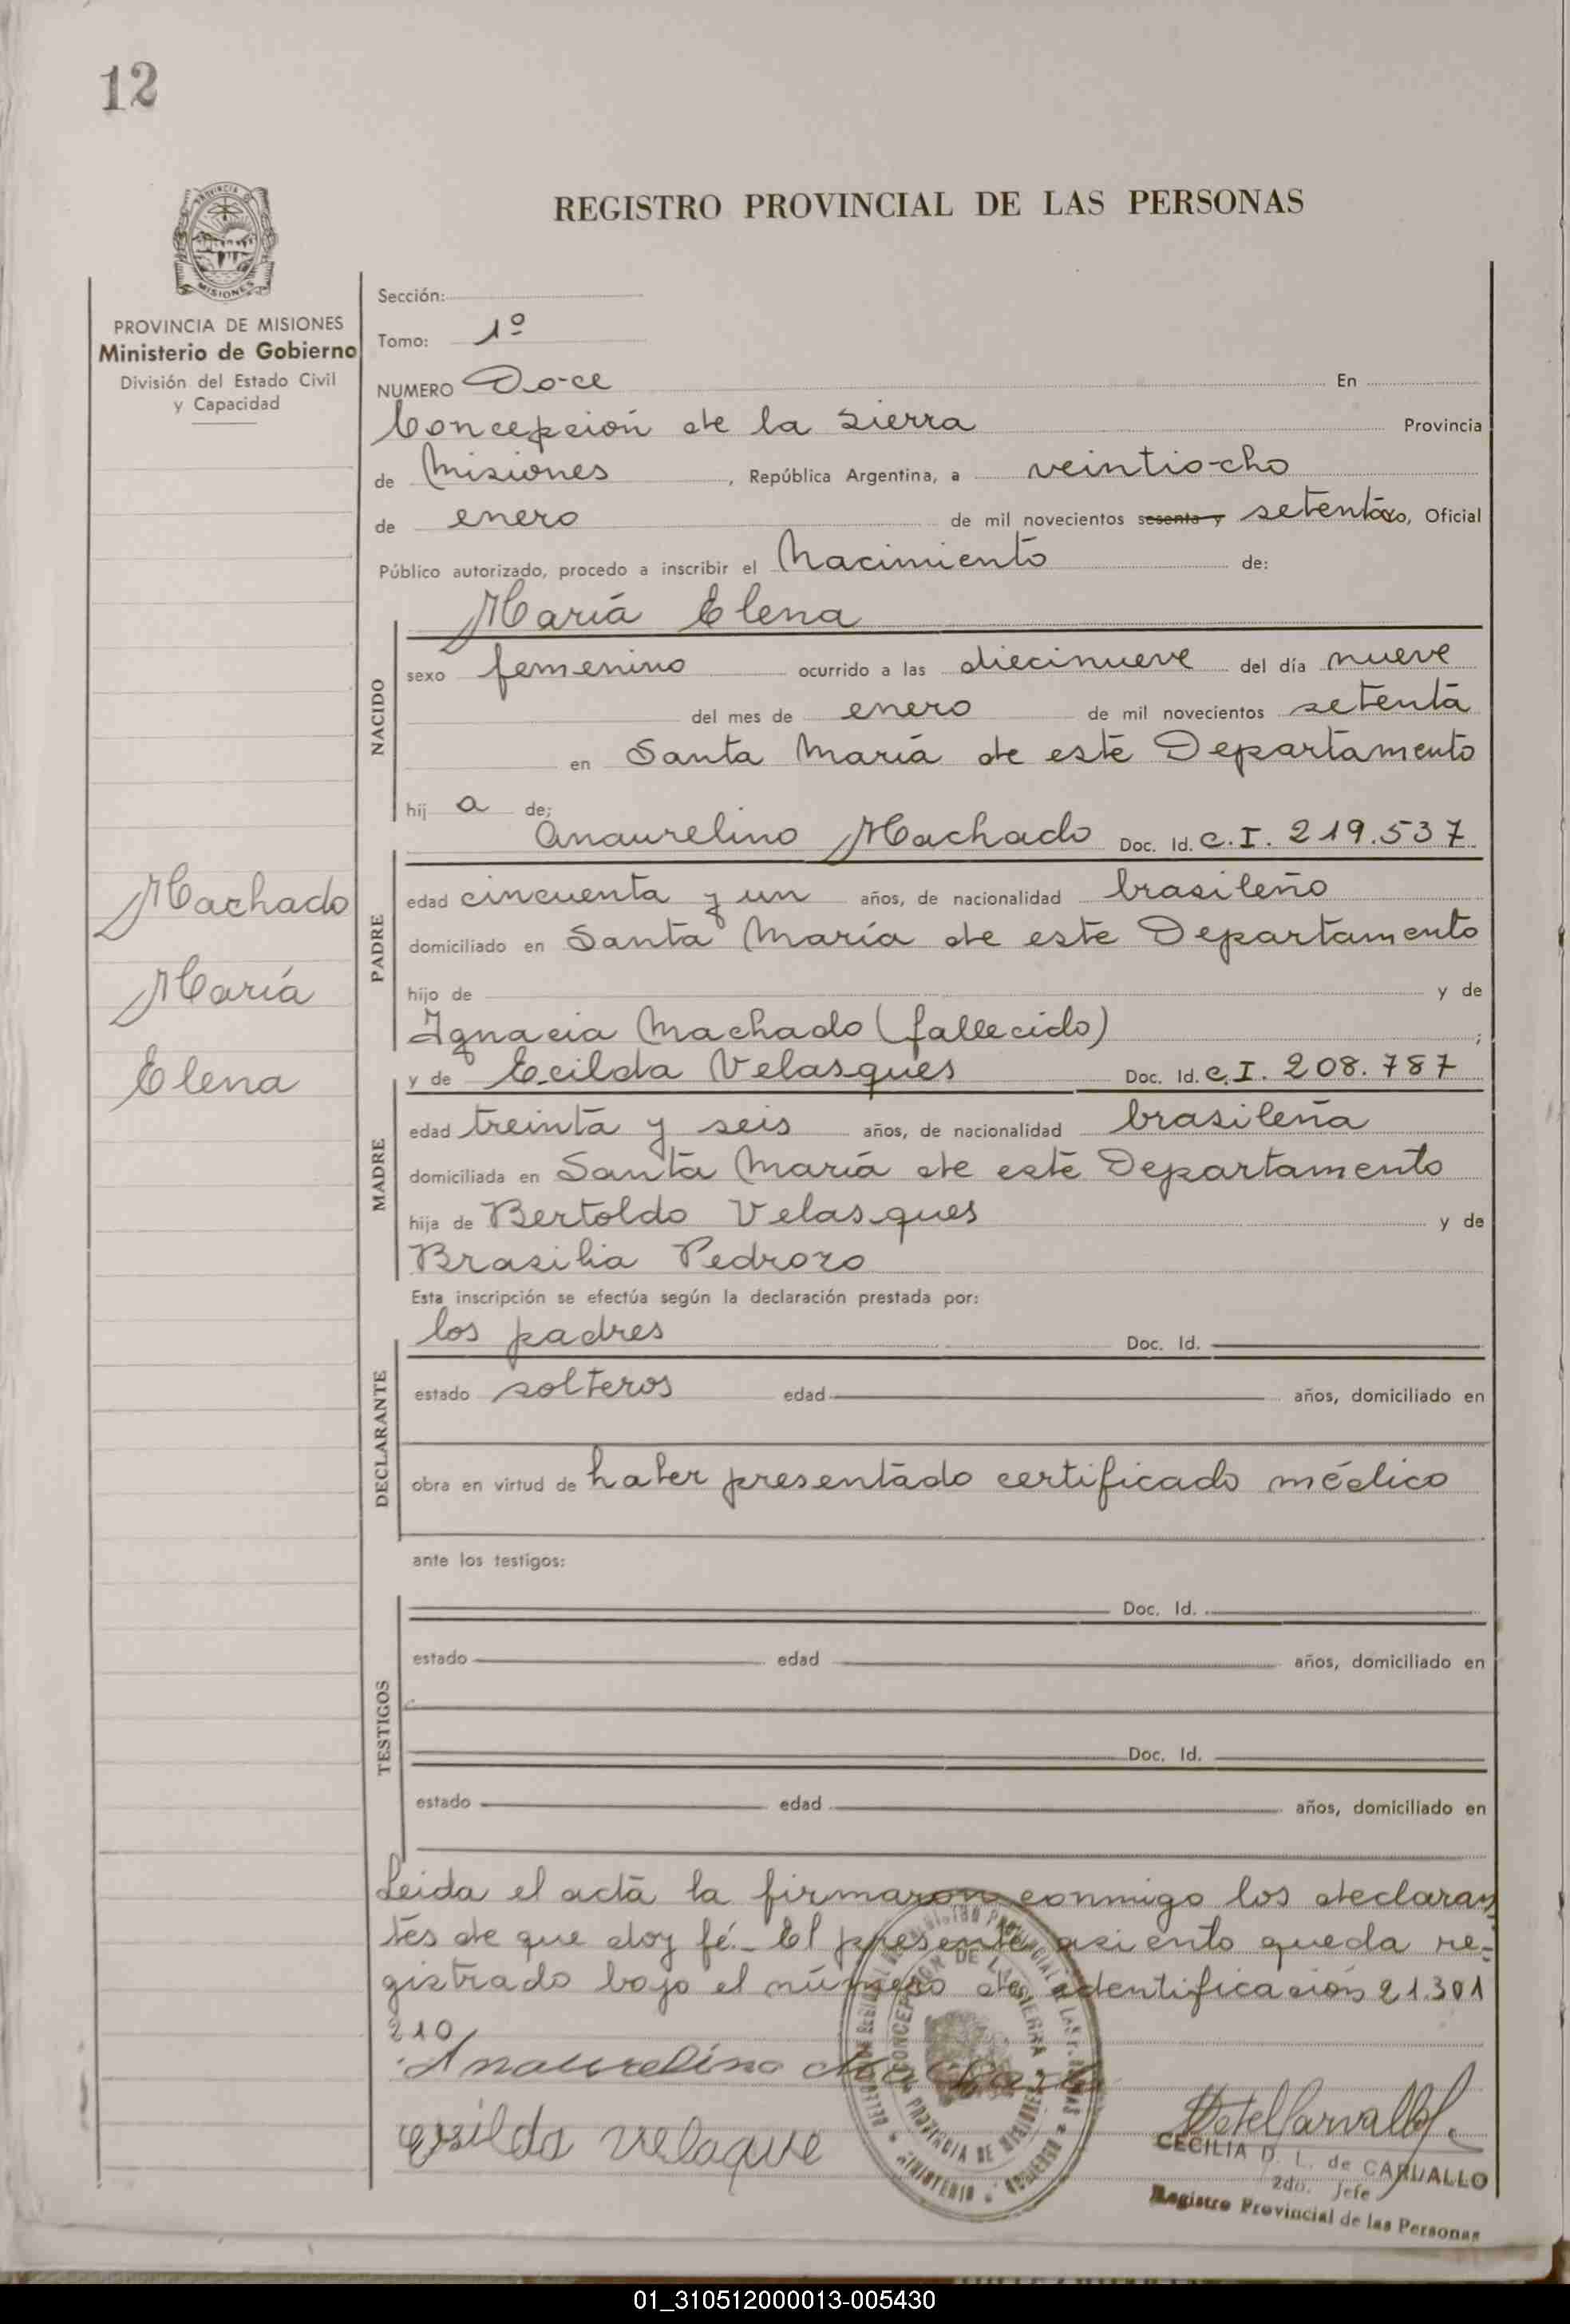 12
REGISTRO PROVINCIAL DE LAS PERSONAS
PROVINCIA DE MISIONES
Ministerio de Gobierno
División del Estado Civil
y Capacidad
Sección:
Tomo: 1º
NUMERO Doce En
Concepción de la Sierra Provincia
de Misiones, República Argentina, a veintiocho
de enero de mil novecientos sesenta y setenta, Oficial
Público autorizado, procedo a inscribir el Nacimiento de:
María Elena
NACIDO
sexo femenino ocurrido a las diecinueve del día nueve
del mes de enero de mil novecientos setenta
en Santa María de este Departamento
hij a de;
Anaurelino Machado Doc. Id. C.I. 219.537
PADRE
edad cincuenta y un años, de nacionalidad brasileño
domiciliado en Santa María de este Departamento
hijo de y de
Ignacia Machado (fallecido) ;
Machado
María
Elena
y de Ecilda Velasques Doc. Id. C.I. 208.787
MADRE
edad treinta y seis años, de nacionalidad brasileña
domiciliada en Santa María de este Departamento
hija de Bertoldo Velasques y de
Brasilia Pedrozo
Esta inscripción se efectúa según la declaración prestada por:
los padres Doc. Id.
DECLARANTE
estado solteros edad años, domiciliado en
obra en virtud de haber presentado certificado médico
ante los testigos:
TESTIGOS
Doc. Id.
estado edad años, domiciliado en
Doc. Id.
estado edad años, domiciliado en
Leida el acta la firmaron conmigo los declaran
tes de que doy fé._ El presente asiento queda re-
gistrado bajo el número de identificación 21.301
210
Anaurelino Machado
Ersilda Velaque
CECILIA D. L. de CARVALLO
2do. Jefe
Registro Provincial de las Personas
CONCEPCION DE LA SIERRA
PROVINCIA DE MISIONES
MINISTERIO GOBIERNO
01_310512000013-005430